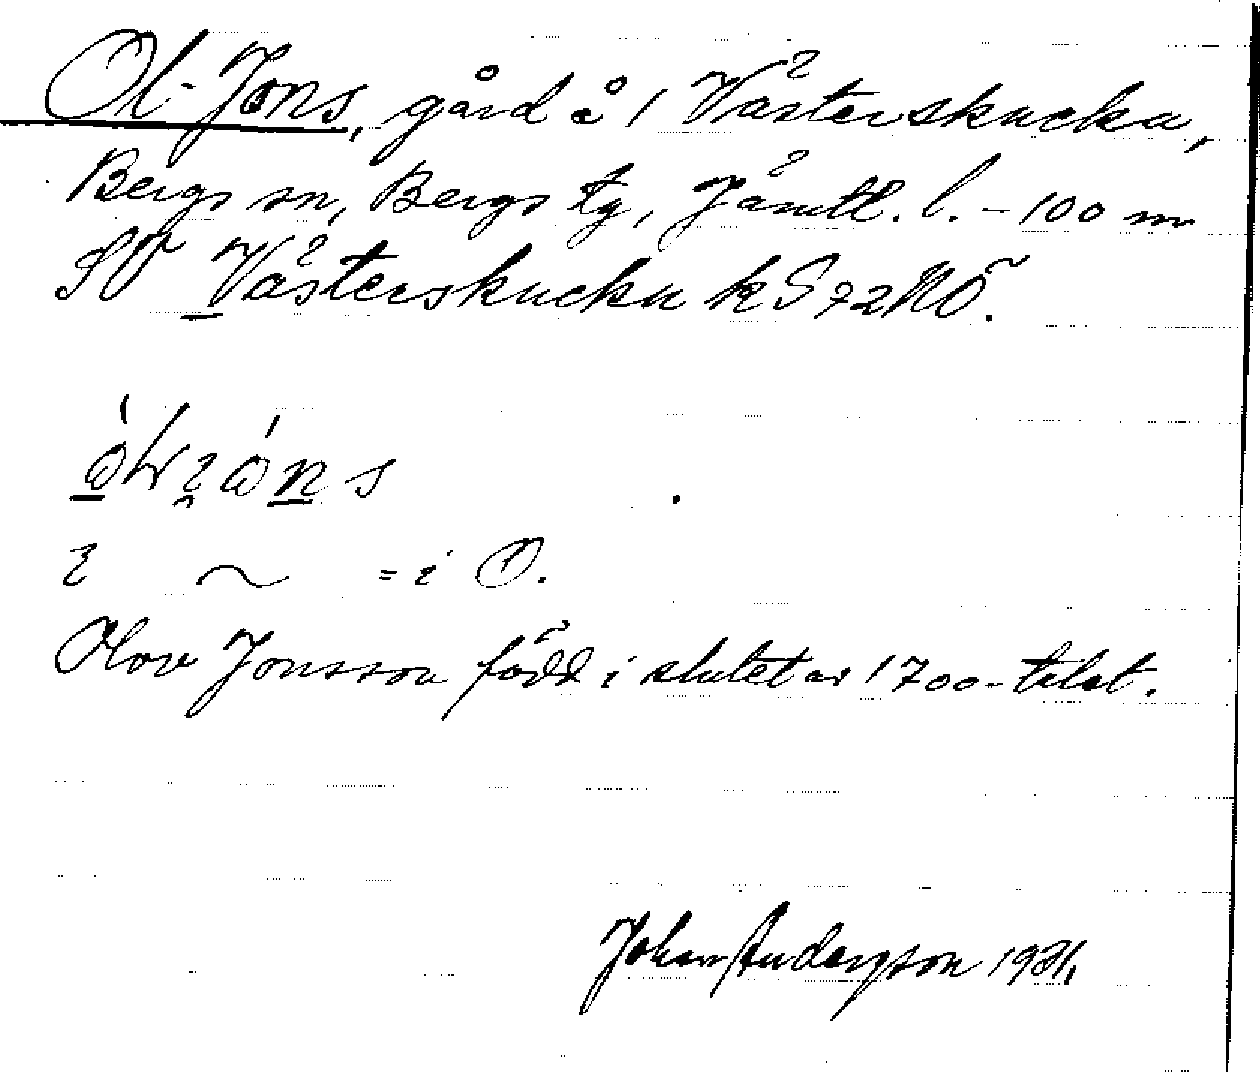 Ol-Jons, gård å 1 Västerskucku,
Bergs sn, Bergs tg, Jämtl. l. – 100 m
SV Västerskucku k S 72 NÖ.
= i O.
Olov Jonsson född i slutet av 1700-talet.
Johan Anderson